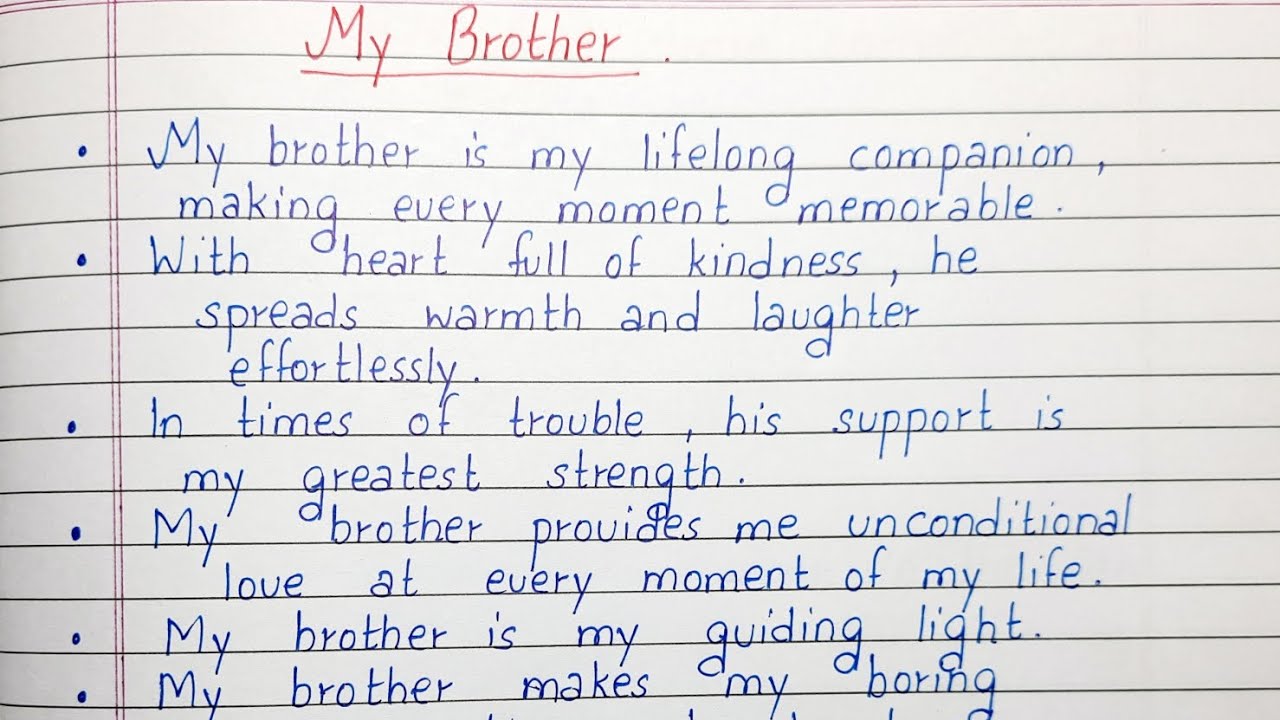 My Brother.
• My brother is my lifelong companion,
making every moment memorable.
• With heart full of kindness, he
spreads warmth and laughter
effortlessly.
• In times of trouble, his support is
my greatest strength.
• My brother provides me unconditional
love at every moment of my life.
• My brother is my guiding light.
• My brother makes my boring